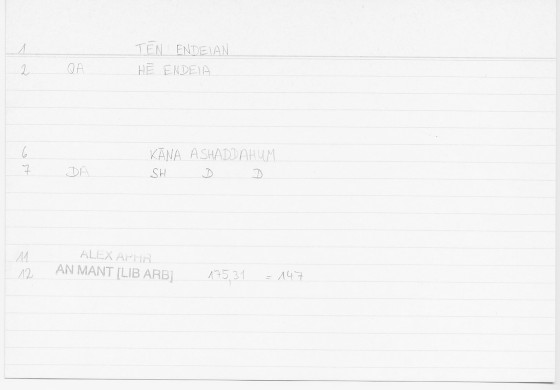 1 TĒN ENDEIAN
2 QA HĒ ENDEIA
6 KĀNA ASHADDAHUM
7 DA SH D D
11 ALEX APHR
12 AN MANT [LIB ARB] 175,31 = 147